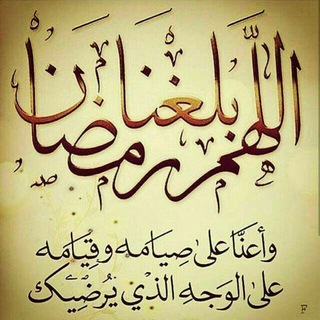 اللهم بلغنا رمضان
وأعنَّا على صِيامه وقِيامه
على الوَجهِ الذي يُرضِيك
F